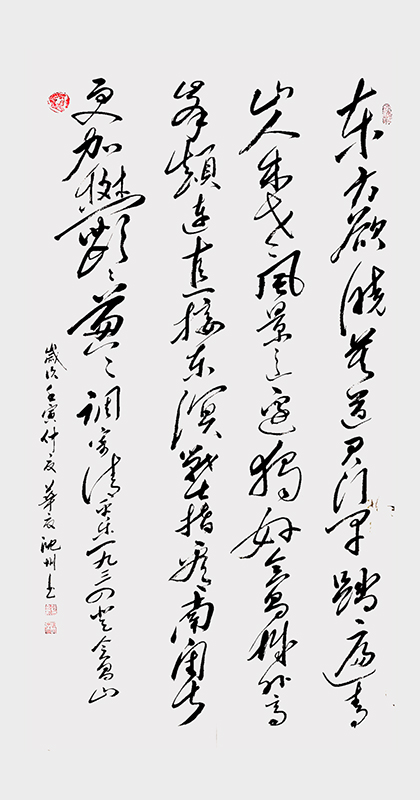 东方欲曉莫道君行早踏遍青
山人未老風景这边獨好会昌城外高
峯顛连直接东溟战士指看南粤
更加鬱々葱々调寄清平乐一九三四登会昌山
歲次壬寅仲夏池州书